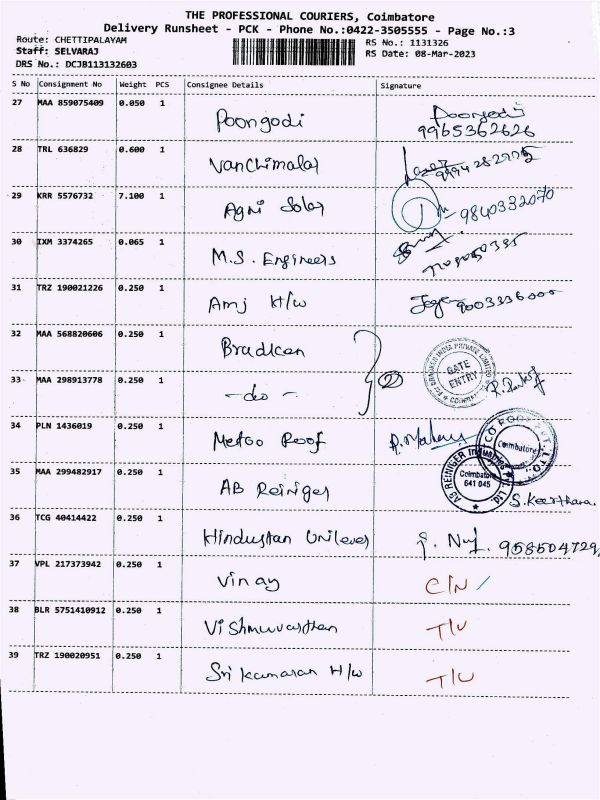 THE PROFESSIONAL COURIERS, Coimbatore
Delivery Runsheet - PCK - Phone No.:0422-3505555 - Page No.:3
Route: CHETTIPALAYAM RS No.: 1131326
Staff: SELVARAJ RS Date: 08-Mar-2023
DRS No.: DCJB113132603
S No Consignment No Weight PCS Consignee Details Signature
27 MAA 859075409 0.050 1 Poongodi Poongodi
9965362626
28 TRL 636829 0.600 1 Vanchimalar
29 KRR 5576732 7.100 1 Agni Solar 9840332070
30 IXM 3374265 0.065 1 M.S. Engineers
31 TRZ 190021226 0.250 1 Amj H/w
32 MAA 568820606 0.250 1
GATE ENTRY
33 MAA 298913778 0.250 1 -do- 2
34 PLN 1436019 0.250 1 Metco Roof
Coimbatore
35 MAA 299482917 0.250 1 AB Reiniger S. Keerthana
AB REINIGER Industries
Coimbatore
641 045
36 TCG 40414422 0.250 1 Hindustan Unilever
37 VPL 217373942 0.250 1 Vinay C/N
38 BLR 5751410912 0.250 1 T/U
39 TRZ 190020951 0.250 1 Sri Kumaran H/w T/U